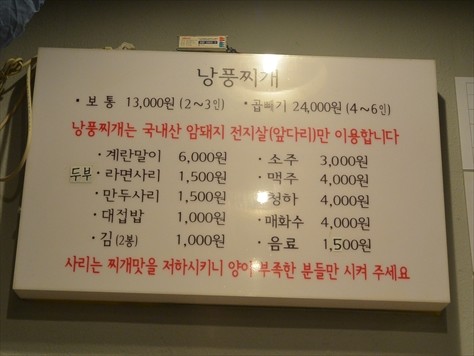 낭풍찌개
• 보통 13,000원 (2～3인) • 곱빼기 24,000원 (4～6인)
낭풍찌개는 국내산 암돼지 전지살(앞다리)만 이용합니다
• 계란말이 6,000원 • 소주 3,000원
두부 • 라면사리 1,500원 • 맥주 4,000원
• 만두사리 1,500원 청하 4,000원
• 대접밥 1,000원 • 매화수 4,000원
• 김 (2봉) 1,000원 • 음료 1,500원
사리는 찌개맛을 저하시키니 양이 부족한 분들만 시켜 주세요